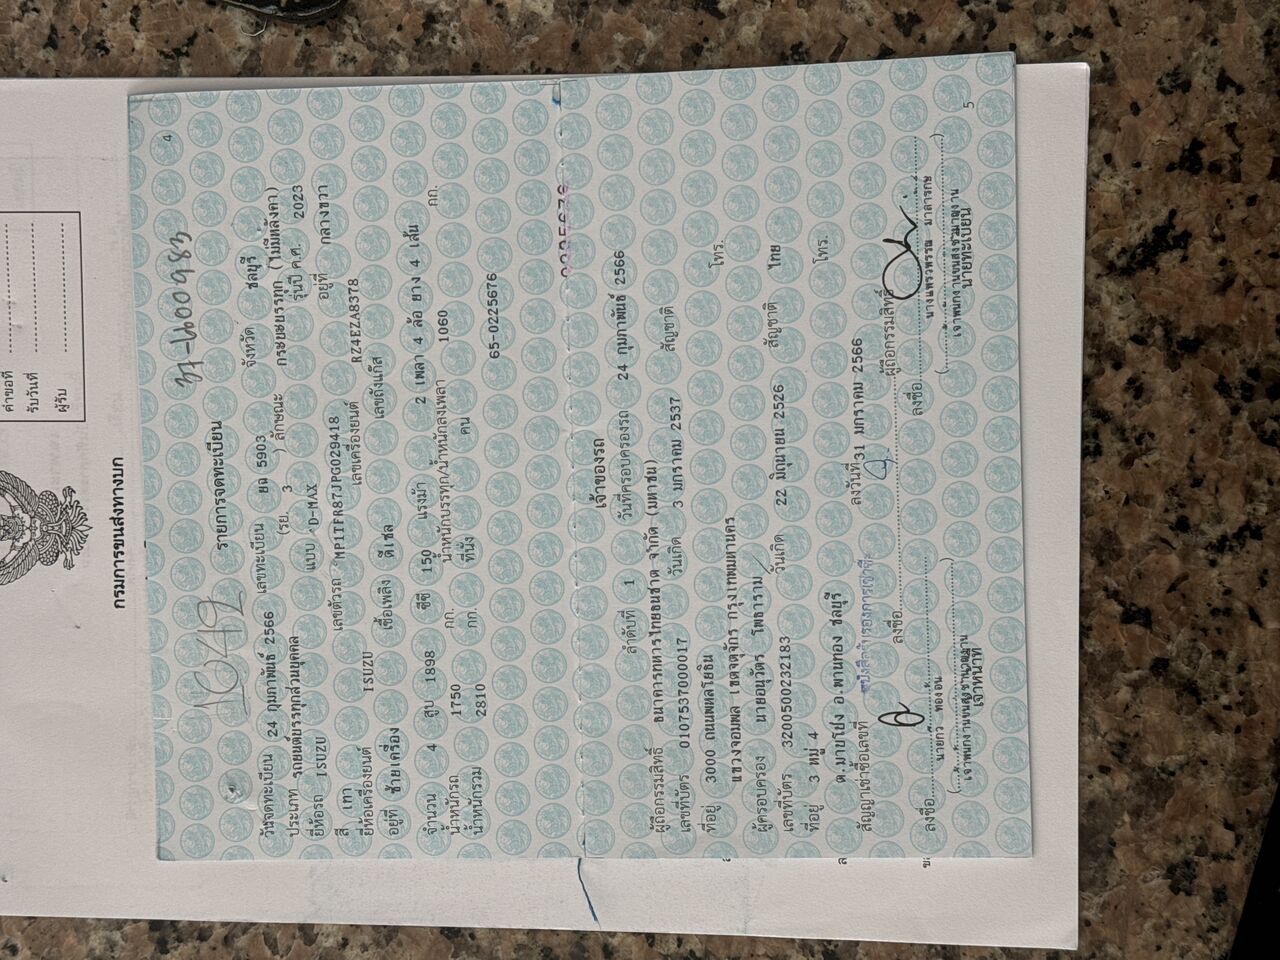 คำขอที่
รับวันที่
ผู้รับ
กรมการขนส่งทางบก
4
37-6600983
1649
รายการจดทะเบียน
วันจดทะเบียน 24 กุมภาพันธ์ 2566 เลขทะเบียน ยฉ 5903 จังหวัด ชลบุรี
ประเภท รถยนต์บรรทุกส่วนบุคคล (รย. 3 ) ลักษณะ กระบะบรรทุก (ไม่มีหลังคา)
ยี่ห้อรถ ISUZU แบบ D-MAX รุ่นปี ค.ศ. 2023
สี เทา เลขตัวรถ MP1TFR87JPG029418 อยู่ที่ กลางขวา
ยี่ห้อเครื่องยนต์ ISUZU เลขเครื่องยนต์ RZ4EZA8378
อยู่ที่ ซ้ายเครื่อง เชื้อเพลิง ดีเซล เลขถังแก๊ส
จำนวน 4 สูบ 1898 ซีซี 150 แรงม้า 2 เพลา 4 ล้อ ยาง 4 เส้น
น้ำหนักรถ 1750 กก. น้ำหนักบรรทุก/น้ำหนักลงเพลา 1060 กก.
น้ำหนักรวม 2810 กก. ที่นั่ง คน
65-0225676
เจ้าของรถ
ลำดับที่ 1 วันที่ครอบครองรถ 24 กุมภาพันธ์ 2566
ผู้ถือกรรมสิทธิ์ ธนาคารทหารไทยธนชาต จำกัด (มหาชน)
เลขที่บัตร 0107537000017 วันเกิด 3 มกราคม 2537 สัญชาติ
ที่อยู่ 3000 ถนนพหลโยธิน โทร.
แขวงจอมพล เขตจตุจักร กรุงเทพมหานคร
ผู้ครอบครอง นายอนุวัตร โพธาราม
เลขที่บัตร 3200500232183 วันเกิด 22 มิถุนายน 2526 สัญชาติ ไทย
ที่อยู่ 3 หมู่ 4 โทร.
ต.มาบโป่ง อ.พานทอง ชลบุรี
สัญญาเช่าซื้อเลขที่ ลงวันที่ 31 มกราคม 2566
ลงชื่อ ผู้ถือกรรมสิทธิ์
ลงชื่อ ลงชื่อ
นางแพรวพรรณ มาลารกษ
เจ้าหน้าที่ นายทะเบียน
5